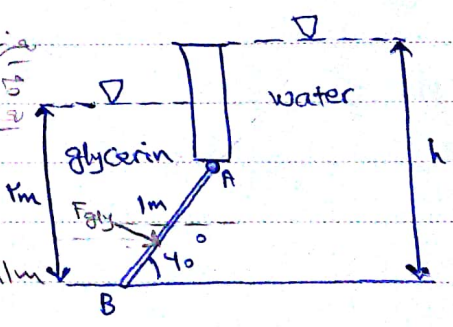 water
glycerin
h
A
1m
Fgly
40°
B